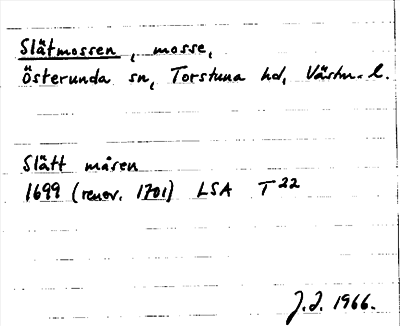 Slätmossen, mosse,
Österunda sn, Torstuna hd, Västm. l.
Slått måsen
1699 (renov. 1701) LSA T 22
J.J. 1966.